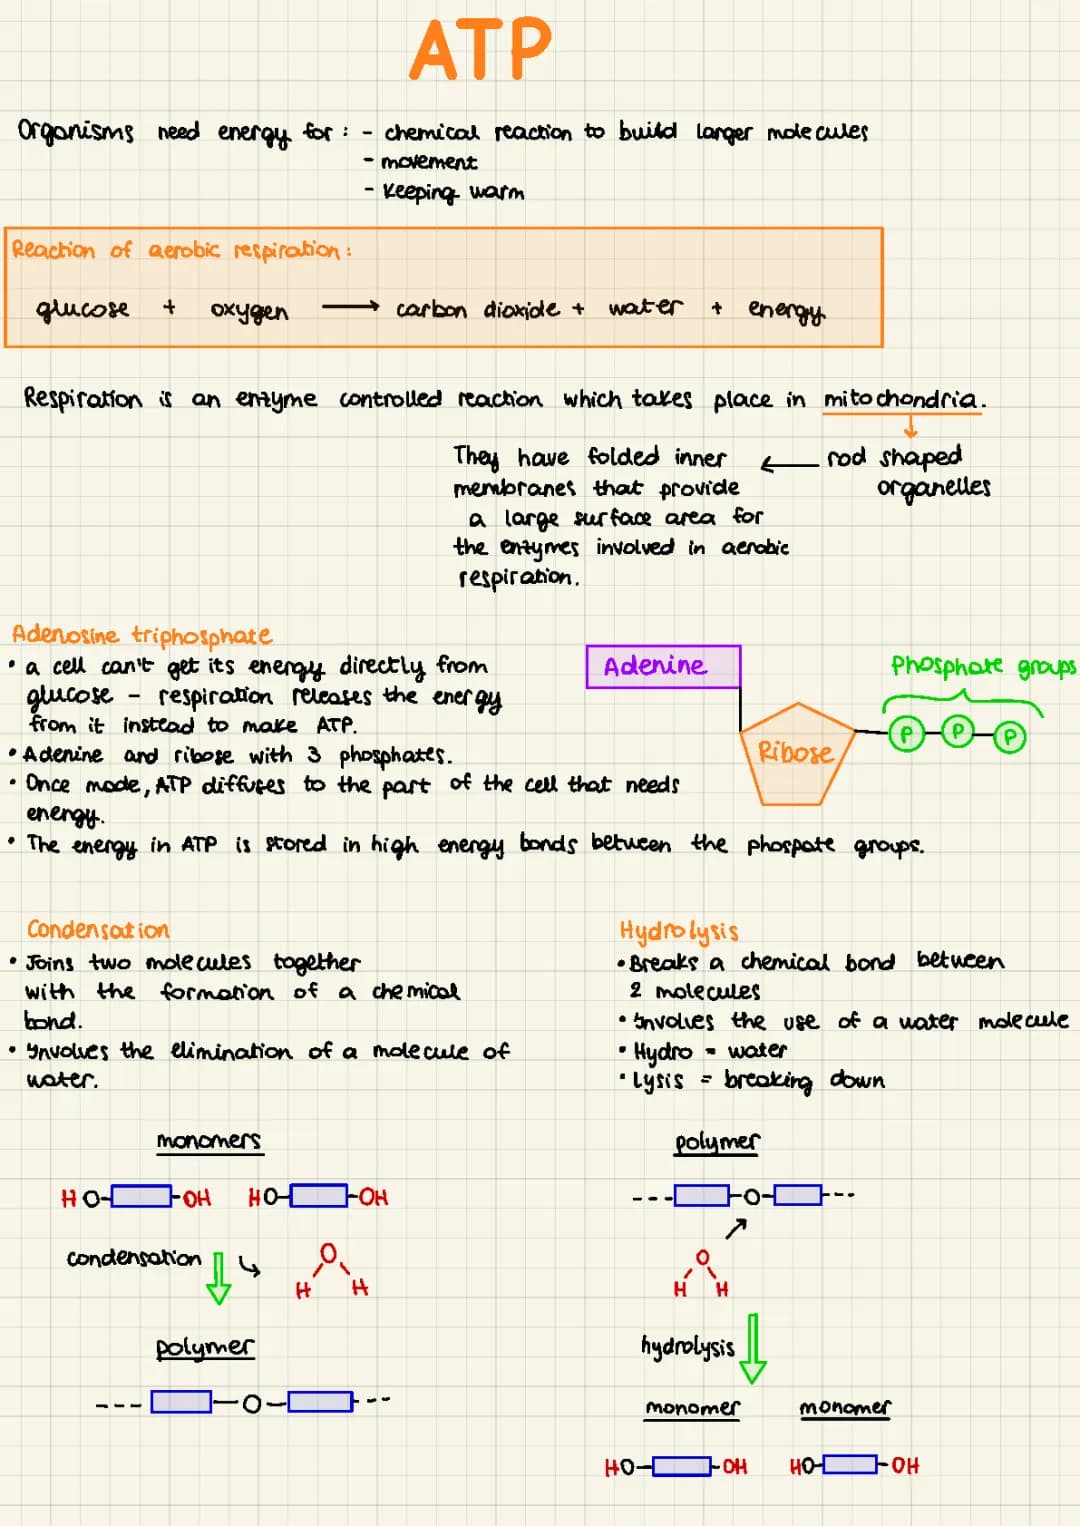 ATP
Organisms need energy for : - chemical reaction to build larger molecules
- movement
- Keeping warm
Reaction of aerobic respiration :
glucose + oxygen → carbon dioxide + water + energy
Respiration is an enzyme controlled reaction which takes place in mitochondria.
They have folded inner ← rod shaped
membranes that provide organelles
a large surface area for
the enzymes involved in aerobic
respiration.
Adenosine triphosphate
• a cell can't get its energy directly from
glucose - respiration releases the energy
from it instead to make ATP.
• Adenine and ribose with 3 phosphates.
• Once made, ATP diffuses to the part of the cell that needs
energy.
• The energy in ATP is stored in high energy bonds between the phospate groups.
Adenine
Phosphate groups
Ribose
P P P
Condensation
• Joins two molecules together
with the formation of a chemical
bond.
• Involves the elimination of a molecule of
water.
monomers
HO OH HO OH
condensation
O
H H
polymer
--- O ---
Hydrolysis
• Breaks a chemical bond between
2 molecules
• Involves the use of a water molecule
• Hydro = water
• Lysis = breaking down
polymer
--- O ---
O
H H
hydrolysis
monomer monomer
HO OH HO OH